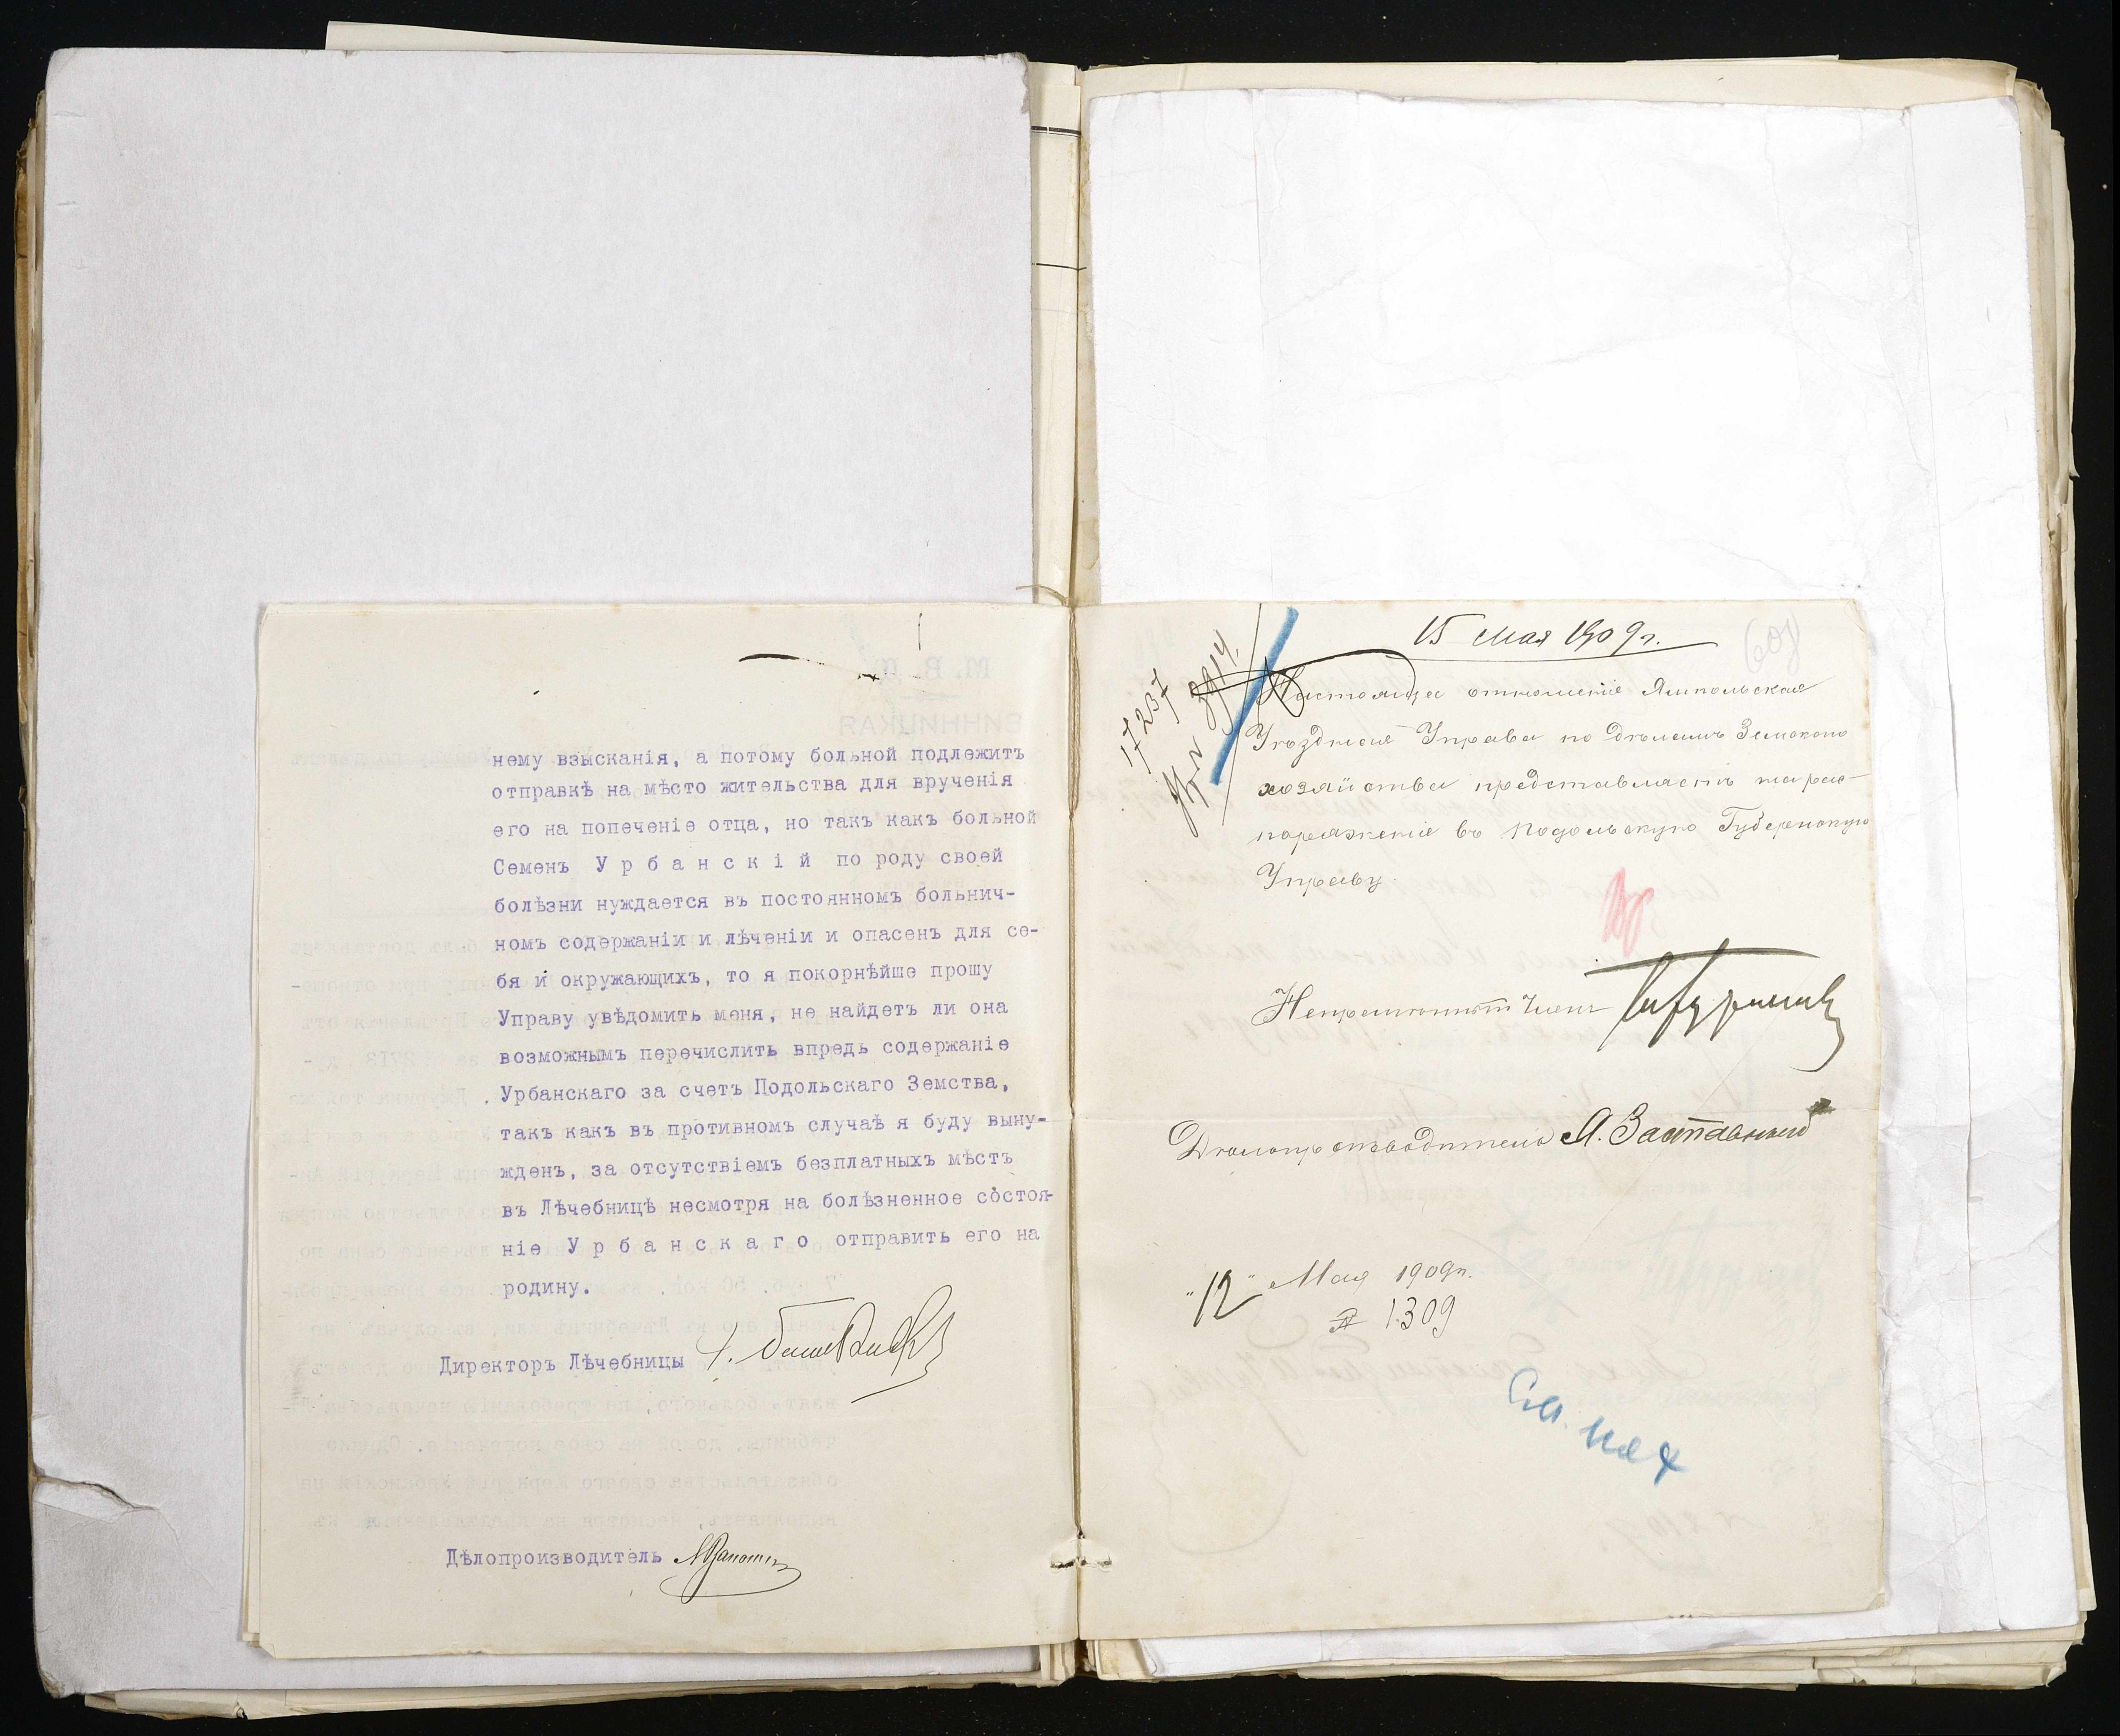 нему взысканія, а потому больной подлежитъ
отправкѣ на мѣсто жительства для врученія
его на попеченіе отца, но такъ какъ больной
Семенъ У р б а н с к і й по роду своей
болѣзни нуждается въ постоянномъ больнич-
номъ содержаніи и лѣченіи и опасенъ для се-
бя и окружающихъ, то я покорнѣйше прошу
Управу увѣдомить меня, не найдетъ ли она
возможнымъ перечислить впредь содержаніе
Урбанскаго за счетъ Подольскаго Земства,
такъ какъ въ противномъ случаѣ я буду выну-
жденъ, за отсутствіемъ безплатныхъ мѣстъ
въ Лѣчебницѣ несмотря на болѣзненное состоя-
ніе У р б а н с к а г о отправить его на
родину.
Директоръ Лѣчебницы
Дѣлопроизводитель
15 мая 1909 г.
608
17237
Настоящее отношеніе Ямпольская
Уѣздная Управа по Дѣламъ Земскаго
хозяйства представляетъ на рас-
поряженіе въ Подольскую Губернскую
Управу.
Непремѣнный Членъ
Дѣлопроизводитель А. Заставный
"12" Мая 1909 г.
№ 1309